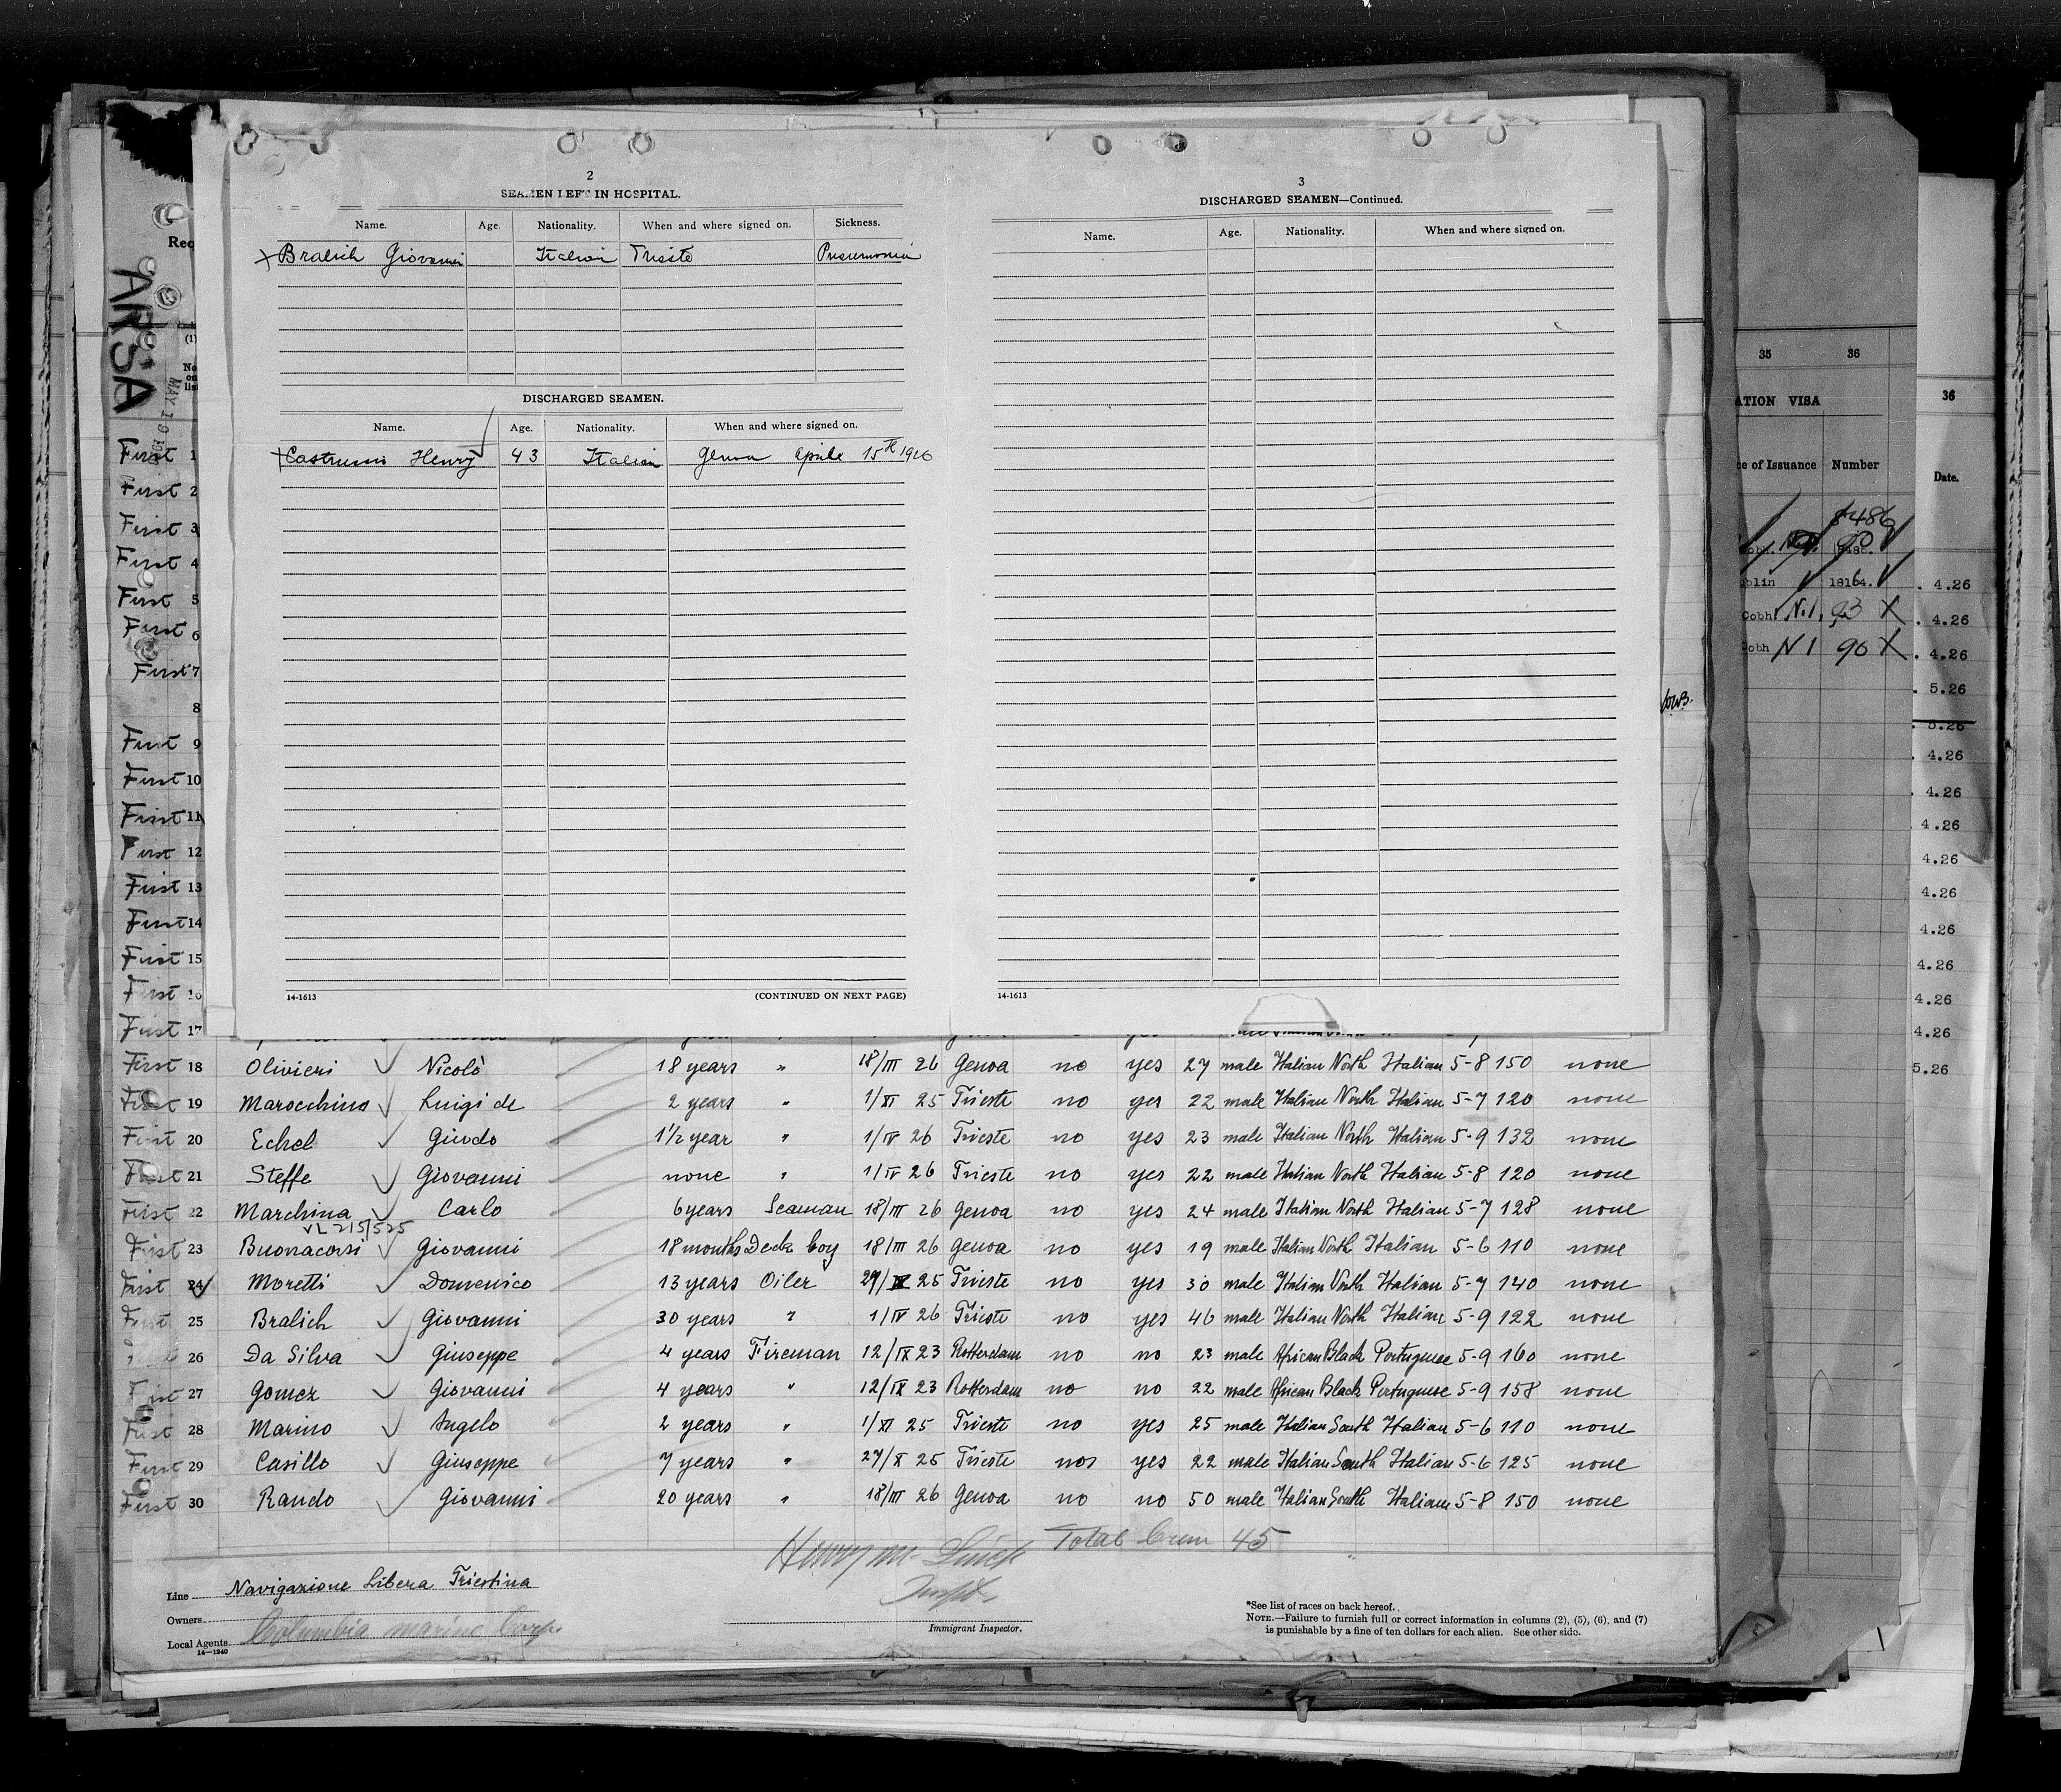 2
SEAMEN LEFT IN HOSPITAL.
Name. Age. Nationality. When and where signed on. Sickness.
Bralich Giovanni Italian Trieste Pneumonia
DISCHARGED SEAMEN.
Name. Age. Nationality. When and where signed on.
Henry 43 Italian Genoa Aprile 15th 1926
14-1613 (CONTINUED ON NEXT PAGE)
3
DISCHARGED SEAMEN—Continued.
Name. Age. Nationality. When and where signed on.
14-1613
ARSA
MAY 19
Req
(1)
No
on
lis
First 1
First 2
First 3
First 4
First 5
First 6
First 7
8
First 9
First 10
First 11
First 12
First 13
First 14
First 15
First 16
First 17
First 18 Olivieri Nicolò 18 years " 18/III 26 Genoa no yes 27 male Italian North Italian 5-8 150 none
First 19 Marocchino Luigi de 2 years " 1/XI 25 Trieste no yes 22 male Italian North Italian 5-7 120 none
First 20 Echel Guido 1½ year " 1/IV 26 Trieste no yes 23 male Italian North Italian 5-9 132 none
First 21 Steffe Giovanni none " 1/IV 26 Trieste no yes 22 male Italian North Italian 5-8 120 none
First 22 Marchina Carlo 6 years Seaman 18/III 26 Genoa no yes 24 male Italian North Italian 5-7 128 none
VL 215/525
First 23 Buonacorsi Giovanni 18 months Deck boy 18/III 26 Genoa no yes 19 male Italian North Italian 5-6 110 none
First 24 Moretti Domenico 13 years Oiler 25 Trieste no yes 30 male Italian North Italian 5-7 140 none
First 25 Bralich Giovanni 30 years " 1/IV 26 Trieste no yes 46 male Italian North Italian 5-9 122 none
26 Da Silva Giuseppe 4 years Fireman 12/IX 23 Rotterdam no no 23 male African Black Portuguese 5-9 160 none
First 27 Gomez Giovanni 4 years " 12/IX 23 Rotterdam no no 22 male African Black Portuguese 5-9 158 none
First 28 Marino Angelo 2 years " 1/XI 25 Trieste no yes 25 male Italian South Italian 5-6 110 none
First 29 Casillo Giuseppe 7 years " 27/X 25 Trieste no yes 22 male Italian South Italian 5-6 125 none
First 30 Rando Giovanni 20 years " 18/III 26 Genoa no no 50 male Italian South Italian 5-8 150 none
Total Crew 45
Henry M.
Line Navigazione Libera Triestina
Owners
Local Agents Columbia Marine Corp.
14—1240
Immigrant Inspector.
*See list of races on back hereof.
NOTE.—Failure to furnish full or correct information in columns (2), (5), (6), and (7)
is punishable by a fine of ten dollars for each alien. See other side.
35 36
ATION VISA
ce of Issuance Number
8486
obh.
blin 18164.
Cobh N.1. 93 X
Cobh N 1 90 X
36
Date.
. 4.26
. 4.26
. 4.26
. 5.26
. 5.26
. 4.26
. 4.26
4.26
4.26
4.26
4.26
4.26
4.26
4.26
5.26